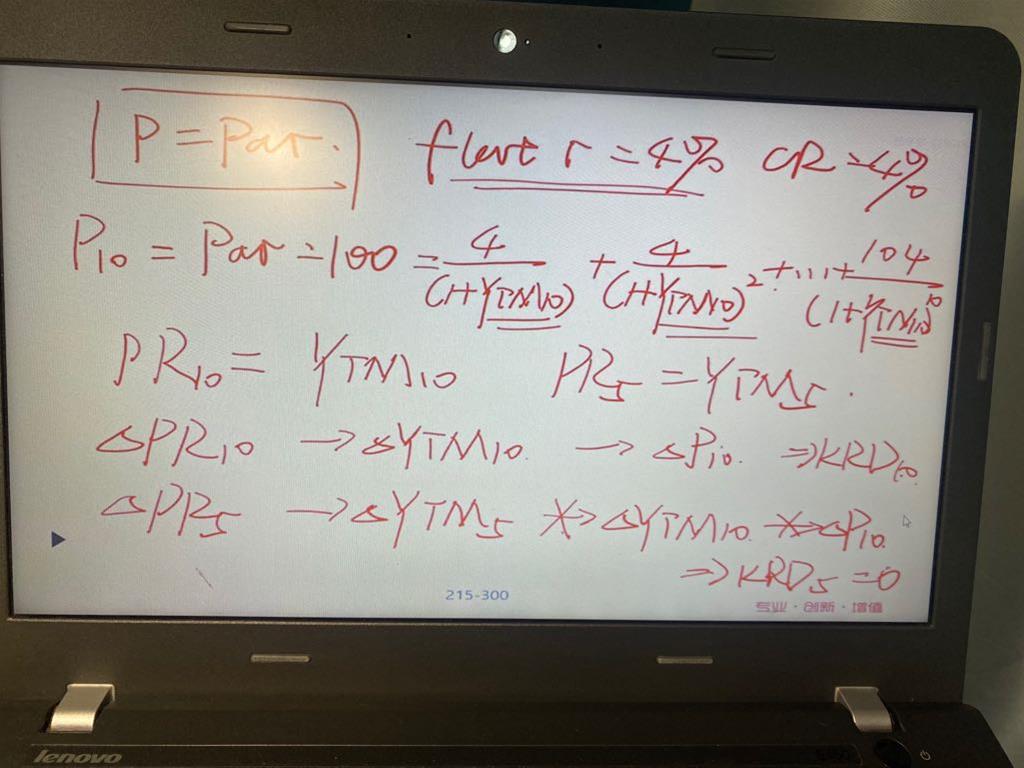 P = Par. flat r = 4% CR = 4%
P10 = Par = 100 = 4/(1+YTM10) + 4/(1+YTM10)^2 + ... + 104/(1+YTM10)^10
PR10 = YTM10 PR5 = YTM5.
△PR10 → △YTM10. → △P10. ⇒ KRD10.
△PR5 → △YTM5 ⇏ △YTM10. ⇏ △P10.
⇒ KRD5 = 0
215-300
专业·创新·增值
lenovo